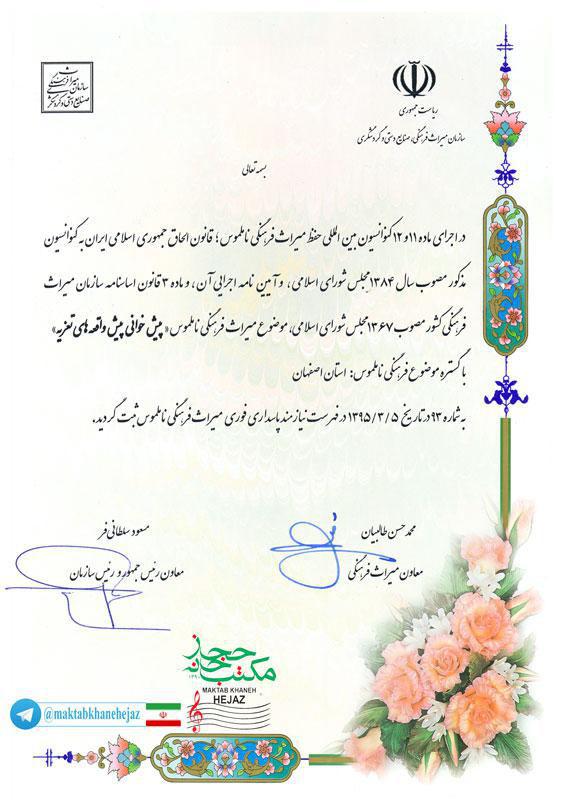 ریاست جمهوری
سازمان میراث فرهنگی، صنایع دستی و گردشگری
سازمان میراث فرهنگی
صنایع دستی و گردشگری
بسمه تعالی
در اجرای ماده ۱۱ و ۱۲ کنوانسیون بین المللی حفظ میراث فرهنگی ناملموس؛ قانون الحاق جمهوری اسلامی ایران به کنوانسیون
مذکور مصوب سال ۱۳۸۴ مجلس شورای اسلامی، و آیین نامه اجرایی آن، و ماده ۳ قانون اساسنامه سازمان میراث
فرهنگی کشور مصوب ۱۳۶۷ مجلس شورای اسلامی، موضوع میراث فرهنگی ناملموس «پیش خوانی پیش واقعه های تعزیه»
با گستره موضوع فرهنگی ناملموس: استان اصفهان
به شماره ۹۳ در تاریخ ۱۳۹۵/۳/۵ در فهرست نیازمند پاسداری فوری میراث فرهنگی ناملموس ثبت گردید.
محمدحسن طالبیان
معاون میراث فرهنگی
مسعود سلطانی فر
معاون رئیس جمهور و رئیس سازمان
مکتب خانه حجاز
MAKTAB KHANEH
HEJAZ
@maktabkhanehejaz